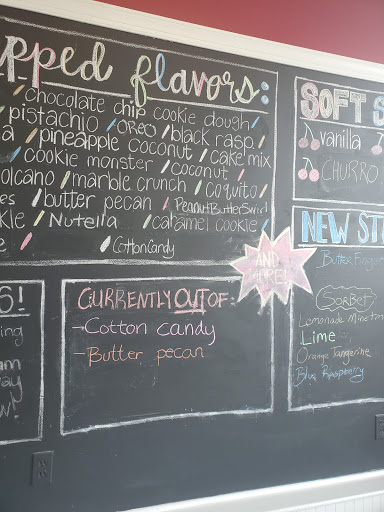 pped flavors:
chocolate chip cookie dough
pistachio OREO black rasp.
a pineapple coconut cake mix
cookie monster coconut
olcano marble crunch coquito
es butter pecan PeanutButterSwirl
kle Nutella caramel cookie
e Cotton Candy
AND MORE!
CURRENTLY OUT OF:
-Cotton candy
-Butter pecan
SOFT S
vanilla
CHURRO
NEW ST
Butter Finger
SORBET
Lemonade
Lime
Orange Tangerine
Blue Raspberry
S!
ing
am
ay
w!